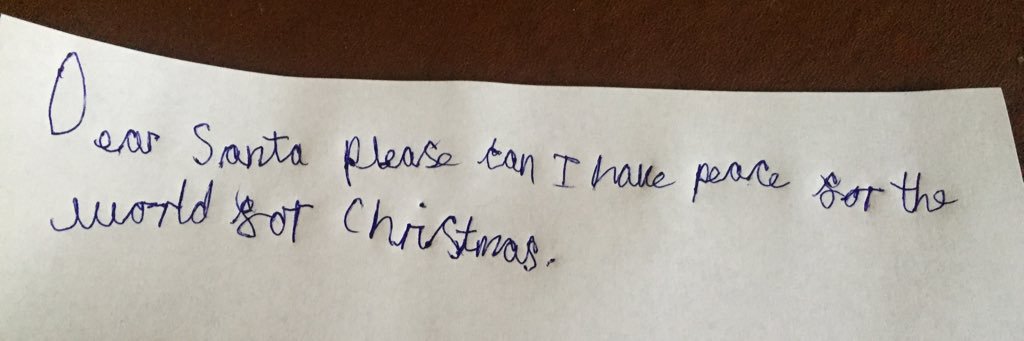 Dear Santa please can I have peace for the
world for Christmas.